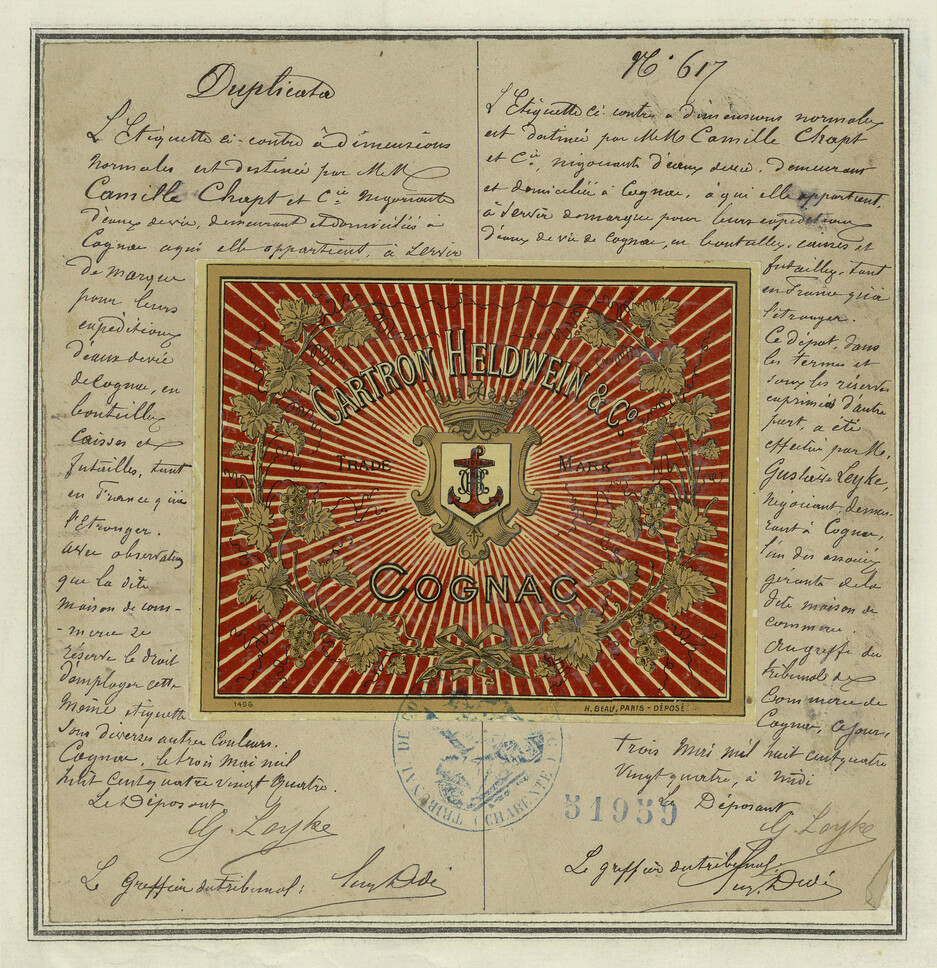 Duplicata
L'Etiquette ci-contre à dimensions
normales est destinée par M.M
Camille Chapt et Cie Négociants
d'eaux de vie, demeurant et domiciliés à
Cognac a qui elle appartient, à servir
de marque
pour leurs
expéditions
d'eaux de vie
de Cognac, en
bouteilles
Caisses et
futailles, tant
en France qu'à
l'Etranger.
avec observation
que la dite
maison de com-
-merce se
réserve le droit
d'employer cette
même etiquette
sous diverses autres couleurs.
Cognac, le trois mai mil
huit cent quatre vingt quatre.
Le Déposant.
G. Leyke
Le Greffier du tribunal:
No 617
L'Etiquette ci-contre a dimensions normales
est destinée par M.M Camille Chapt
et Cie, négociants d'eaux de vie, demeurant
et domiciliés à Cognac, à qui elle appartient,
à servir de marque pour leurs expéditions
d'eaux de vie de Cognac, en bouteilles, caisses et
futailles, tant
en France qu'à
l'étranger.
Ce dépot, dans
les termes et
sous les réserves
exprimés d'autre
part, a été
effectué par M.
Gustave Leyke,
négociant, demeu-
rant à Cognac,
l'un des associés
gérants de la
dite maison de
commerce.
Au greffe du
tribunal de
Commerce de
Cognac, ce jour,
trois Mai mil huit cent quatre
vingt quatre, à midi
Le Déposant
G. Leyke
Le greffier du tribunal.
CARTRON HELDWEIN & Co.
TRADE MARK
COGNAC
1496
H. BEAU, PARIS - DÉPOSÉ
TRIBUNAL DE CO
CHARENTE
51959